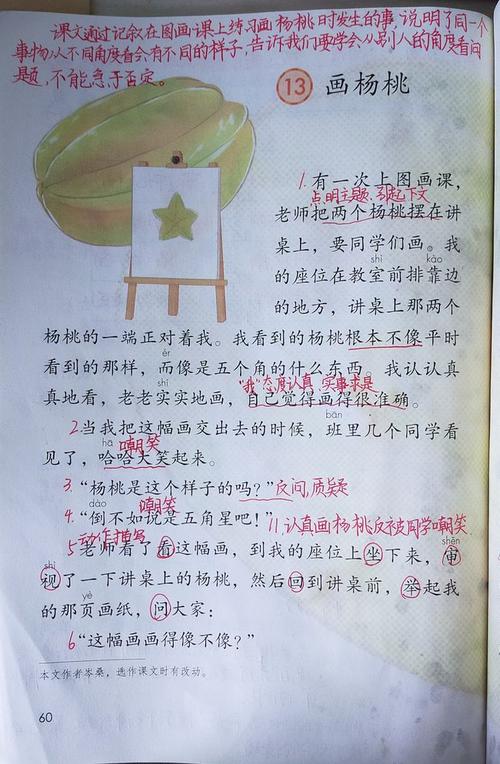 课文通过记叙在图画课上练习画杨桃时发生的事,说明了同一个
事物,从不同角度看会有不同的样子,告诉我们要学会从别人的角度看问
题,不能急于否定。
13 画杨桃
1.有一次上图画课,
点明主题.引起下文
老师把两个杨桃摆在讲
桌上,要同学们画。我
shì kào
的座位在教室前排靠边
的地方,讲桌上那两个
杨桃的一端正对着我。我看到的杨桃根本不像平时
ér
看到的那样,而像是五个角的什么东西。我认认真
shí "我"态度认真,实事求是
真地看,老老实实地画,自己觉得画得很准确。
bān
2当我把这幅画交出去的时候,班里几个同学看
hā 嘲笑
见了,哈哈大笑起来。
3.“杨桃是这个样子的吗?”反问,质疑
dào 嘲笑
4.“倒不如说是五角星吧!”11.认真画杨桃反被同学嘲笑
动作描写
5老师看了看这幅画,到我的座位上坐下来,审
shěn
shì
视了一下讲桌上的杨桃,然后回到讲桌前,举起我
yè
的那页画纸,问大家:
6“这幅画画得像不像?”
本文作者岑桑,选作课文时有改动。
60